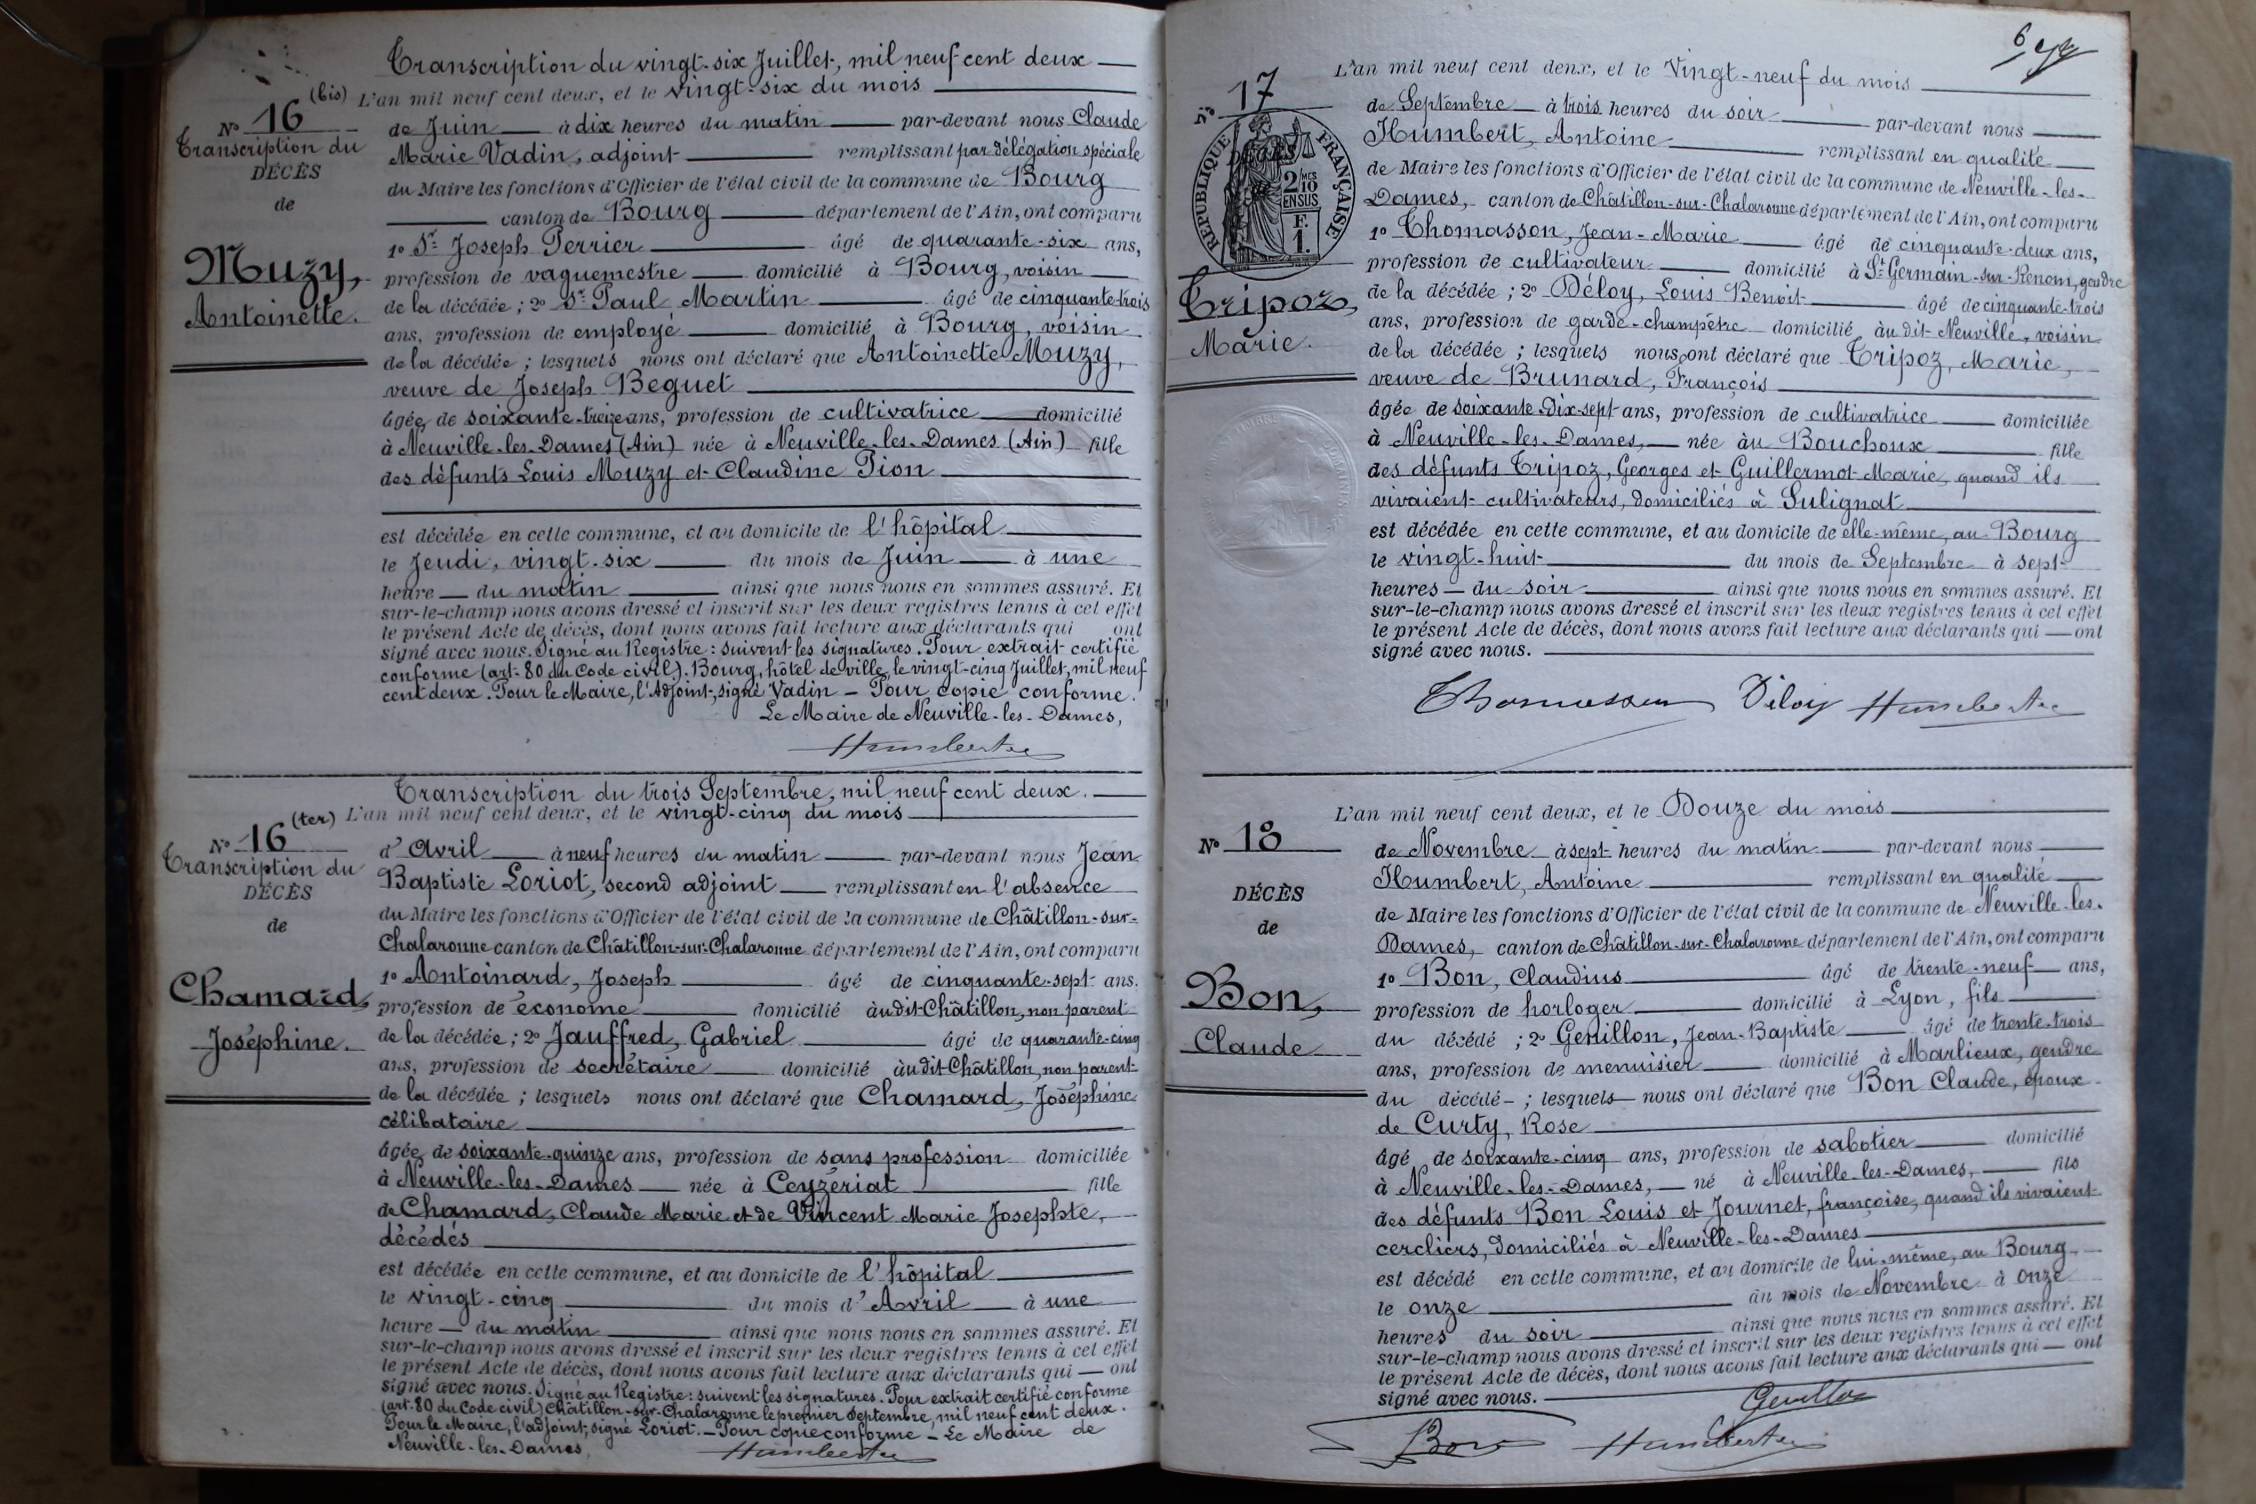 Transcription du vingt-six Juillet, mil neuf cent deux
(bis) L'an mil neuf cent deux, et le vingt-six du mois
N° 16
Transcription du
DÉCÈS
de
Muzy,
Antoinette.
de Juin à dix heures du matin par-devant nous Claude
Marie Vadin, adjoint remplissant par délégation spéciale
du Maire les fonctions d'Officier de l'état civil de la commune de Bourg
canton de Bourg département de l'Ain, ont comparu
1° Sr Joseph Perrier âgé de quarante-six ans,
profession de vaguemestre domicilié à Bourg, voisin
de la décédée ; 2° Sr Paul Martin âgé de cinquante-trois
ans, profession de employé domicilié à Bourg, voisin
de la décédée ; lesquels nous ont déclaré que Antoinette Muzy,
veuve de Joseph Beguet
âgée de soixante-treize ans, profession de cultivatrice domicilié
à Neuville-les-Dames (Ain) née à Neuville-les-Dames (Ain) fille
des défunts Louis Muzy et Claudine Pion
est décédée en cette commune, et au domicile de l'hôpital
le Jeudi, vingt-six du mois de Juin à une
heure du matin ainsi que nous nous en sommes assuré. Et
sur-le-champ nous avons dressé et inscrit sur les deux registres tenus à cet effet
le présent Acte de décès, dont nous avons fait lecture aux déclarants qui ont
signé avec nous. Signé au Registre : suivent les signatures. Pour extrait certifié
conforme (art. 80 du Code civil). Bourg, hôtel de ville, le vingt-cinq Juillet, mil neuf
cent deux. Pour le Maire, l'Adjoint, signé Vadin – Pour copie conforme.
Le Maire de Neuville-les-Dames,
Humbert
Transcription du trois Septembre, mil neuf cent deux.
(ter) L'an mil neuf cent deux, et le vingt-cinq du mois
N° 16
Transcription du
DÉCÈS
de
Chamard,
Joséphine.
d'Avril à neuf heures du matin par-devant nous Jean
Baptiste Loriot, second adjoint remplissant en l'absence
du Maire les fonctions d'Officier de l'état civil de la commune de Châtillon-sur-
Chalaronne canton de Châtillon-sur-Chalaronne département de l'Ain, ont comparu
1° Antoinard, Joseph âgé de cinquante-sept ans.
profession de économe domicilié au dit Châtillon, non parent
de la décédée ; 2° Jauffred, Gabriel âgé de quarante-cinq
ans, profession de secrétaire domicilié au dit Châtillon, non parent
de la décédée ; lesquels nous ont déclaré que Chamard, Joséphine
célibataire
âgée de soixante-quinze ans, profession de sans profession domiciliée
à Neuville-les-Dames née à Ceyzériat fille
de Chamard, Claude Marie et de Vincent Marie Josephte,
décédés
est décédée en cette commune, et au domicile de l'hôpital
le vingt-cinq du mois d'Avril à une
heure du matin ainsi que nous nous en sommes assuré. Et
sur-le-champ nous avons dressé et inscrit sur les deux registres tenus à cet effet
le présent Acte de décès, dont nous avons fait lecture aux déclarants qui ont
signé avec nous. Signé au Registre : suivent les signatures. Pour extrait certifié conforme
(art. 80 du Code civil) Châtillon-sur-Chalaronne le premier Septembre, mil neuf cent deux.
Pour le Maire, l'adjoint, signé Loriot. – Pour copie conforme – Le Maire de
Neuville-les-Dames,
Humbert
6
L'an mil neuf cent deux, et le Vingt-neuf du mois
N° 17
RÉPUBLIQUE FRANÇAISE
DÉCÈS
2/10 EN SUS
F. 1.
Tripoz,
Marie.
de Septembre à trois heures du soir par-devant nous
Humbert, Antoine remplissant en qualité
de Maire les fonctions d'Officier de l'état civil de la commune de Neuville-les-
Dames, canton de Châtillon-sur-Chalaronne département de l'Ain, ont comparu
1° Thomasson, Jean-Marie âgé de cinquante-deux ans,
profession de cultivateur domicilié à St Germain-sur-Renom, gendre
de la décédée ; 2° Déloy, Louis Benoit âgé de cinquante-trois
ans, profession de garde-champêtre domicilié au dit Neuville, voisin
de la décédée ; lesquels nous ont déclaré que Tripoz, Marie,
veuve de Brunard, François
âgée de soixante-Dix-sept ans, profession de cultivatrice domiciliée
à Neuville-les-Dames, née au Bouchoux fille
des défunts Tripoz, Georges et Guillermot Marie, quand ils
vivaient cultivateurs, domiciliés à Sulignat
est décédée en cette commune, et au domicile de elle-même, au Bourg
le vingt-huit du mois de Septembre à sept
heures du soir ainsi que nous nous en sommes assuré. Et
sur-le-champ nous avons dressé et inscrit sur les deux registres tenus à cet effet
le présent Acte de décès, dont nous avons fait lecture aux déclarants qui ont
signé avec nous.
Thomasson Déloy Humbert
L'an mil neuf cent deux, et le Douze du mois
N° 18
DÉCÈS
de
Bon,
Claude
de Novembre à sept heures du matin par-devant nous
Humbert, Antoine remplissant en qualité
de Maire les fonctions d'Officier de l'état civil de la commune de Neuville-les-
Dames, canton de Châtillon-sur-Chalaronne département de l'Ain, ont comparu
1° Bon, Claudius âgé de trente-neuf ans,
profession de horloger domicilié à Lyon, fils
du décédé ; 2° Genillon, Jean-Baptiste âgé de trente-trois
ans, profession de menuisier domicilié à Marlieux, gendre
du décédé ; lesquels nous ont déclaré que Bon Claude, époux
de Curty, Rose
âgé de soixante-cinq ans, profession de sabotier domicilié
à Neuville-les-Dames, né à Neuville-les-Dames, fils
des défunts Bon Louis et Journet, françoise, quand ils vivaient
cercliers, domiciliés à Neuville-les-Dames
est décédé en cette commune, et au domicile de lui-même, au Bourg
le onze du mois de Novembre à onze
heures du soir ainsi que nous nous en sommes assuré. Et
sur-le-champ nous avons dressé et inscrit sur les deux registres tenus à cet effet
le présent Acte de décès, dont nous avons fait lecture aux déclarants qui ont
signé avec nous.
Genillon
Bon Humbert